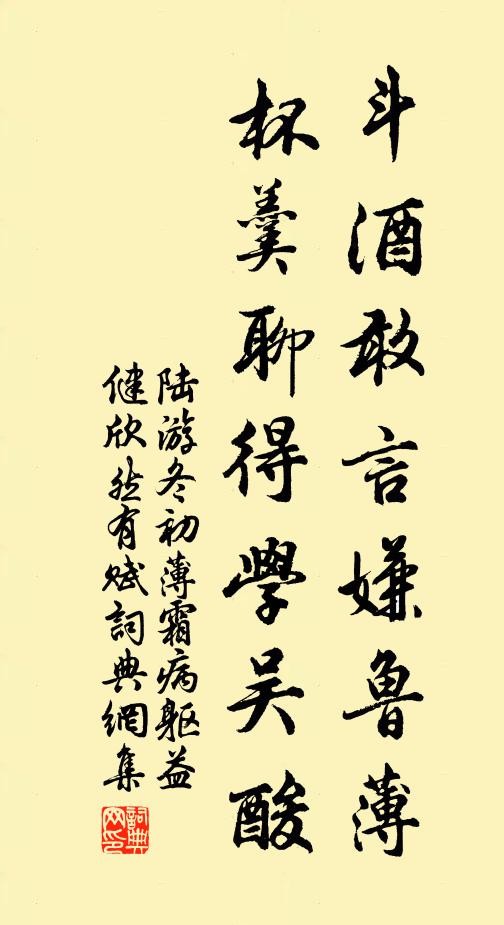 斗酒敢言嫌鲁薄
杯羹聊得學吴酸
陆游冬初薄霜病躯益
健欣然有赋詞典網集
詞典
网印